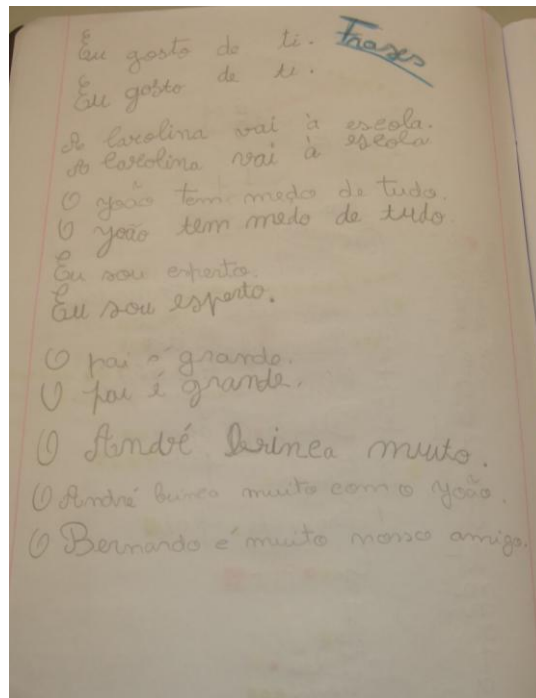 Eu gosto de ti. Frases
Eu gosto de ti.
A Carolina vai à escola.
A Carolina vai à escola
O João tem medo de tudo.
O João tem medo de tudo.
Eu sou esperto.
Eu sou esperto.
O pai é grande.
O pai é grande.
O André brinca muito.
O André brinca muito com o João.
O Bernardo é muito nosso amigo.